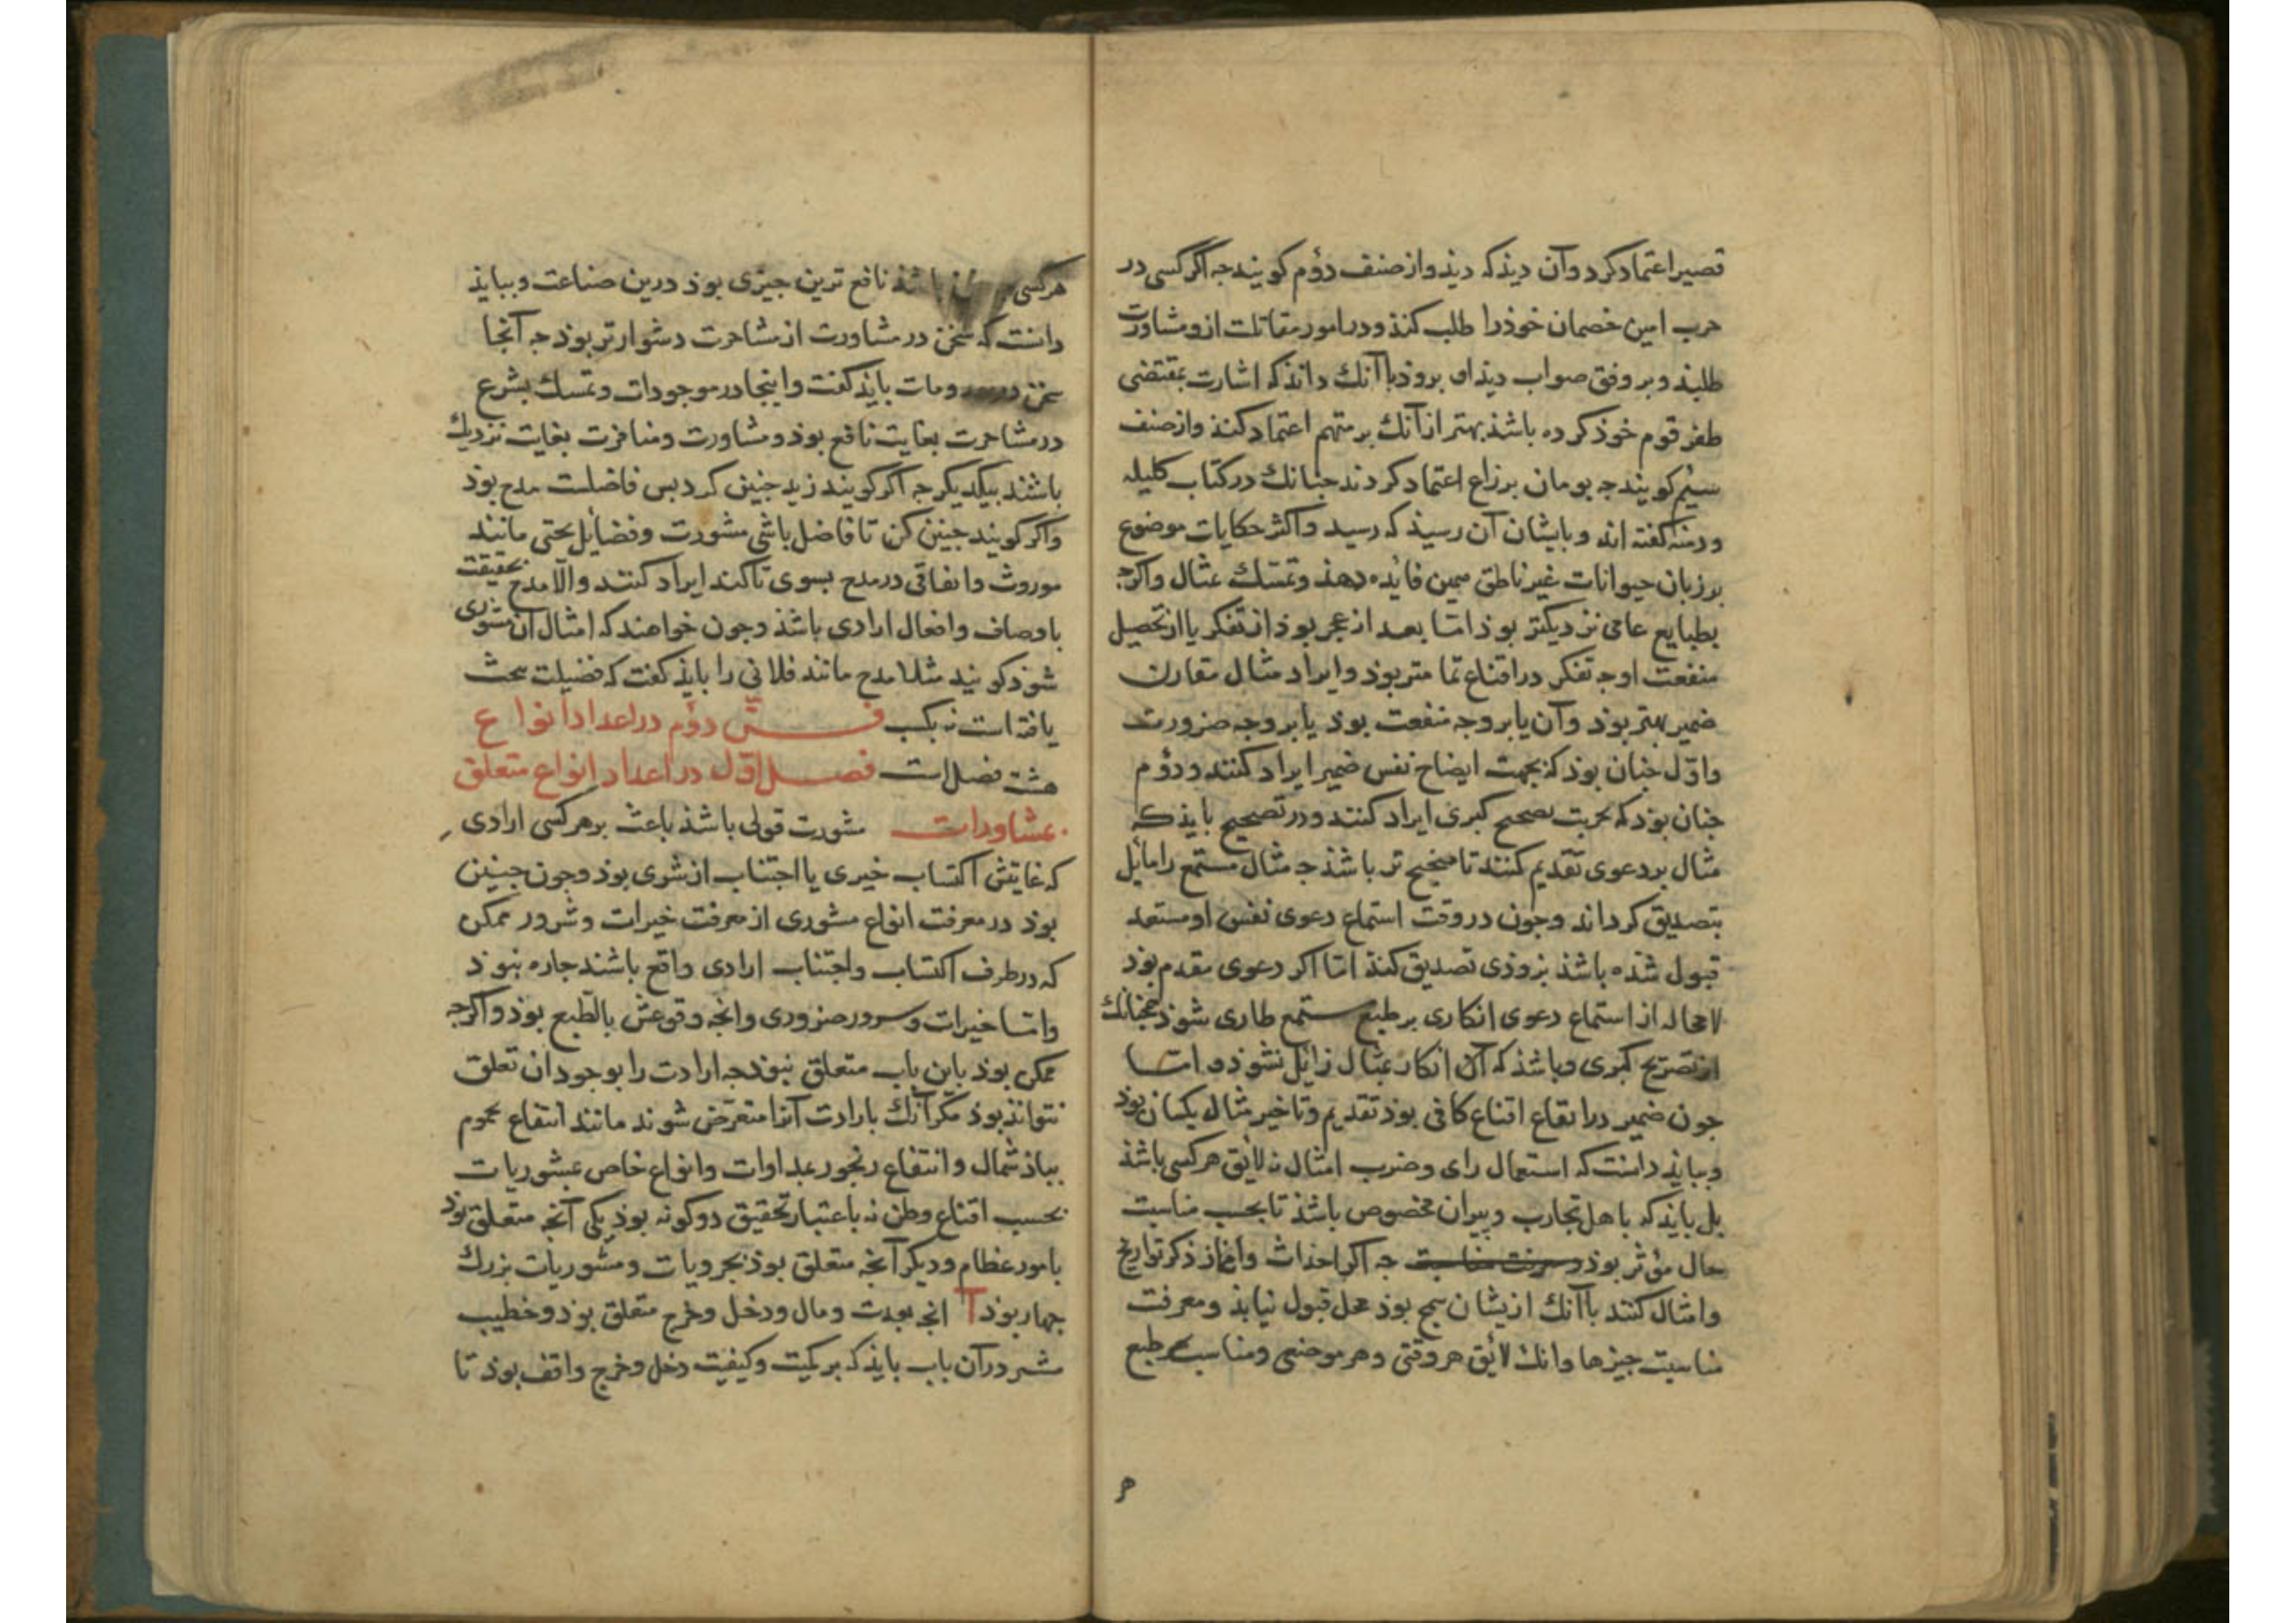 قصیر اعتماد کرد و آن دیذ که دیذ و از صنف دؤم کویند جه اکر کسی در
حرب امین خصمان خوذ را طلب کنذ و در امور مقاتلت ازو مشاورت
طلبذ و بر وفق صواب دیذ او بروذ با آنك داند که اشارت بمقتضی
ظفر قوم خوذ کرده باشذ بهتر از آنك بر متهم اعتماد کنذ و از صنف
سیم کویند جه بومان بر زاع اعتماد کردند جنانك در کتاب کلیله
ودمنه کفته اند و بایشان آن رسیذ که رسید و اکثر حکایات موضوع
بر زبان حیوانات غیر ناطق همین فائده دهذ و تمسّك بمثال و اکرجه
بطبایع عامی نزدیکتر بوذ امّا بعد از عجز بوذ از تفکر یا از تحصیل
منفعت او جه تفکر در اقناع تمامتر بوذ و ایراد مثال مقارن
ضمیر بهتر بوذ و آن یا بر وجه منفعت بوذ یا بر وجه ضرورت
و اوّل جنان بوذ که بجهت ایضاح نفس ضمیر ایراد کنند و دؤم
جنان بوذ که بجهت تصحیح کبری ایراد کنند و در تصحیح بایذ که
مثال بر دعوی تقدیم کنند تا صحیح تر باشذ جه مثال مستمع را مایل
بتصدیق کرداند و جون در وقت استماع دعوی نفس او مستعد
قبول شذه باشذ بزوذی تصدیق کنذ امّا اکر دعوی مقدم بوذ
لا محاله از استماع دعوی انکاری بر طبع مستمع طاری شوذ همجنانك
از تصریح کبری و باشذ که آن انکار بمثال زایل نشوذ و امّا
جون ضمیر در ایقاع اقناع کافی بوذ تقدیم و تاخیر مثال یکسان بوذ
و ببایذ دانست که استعمال رای و ضرب امثال نه لایق هر کسی باشذ
بل بایذ که باهل تجارب و پیران مخصوص باشذ تا بحسب مناسبت
حال مؤثر بوذ جه اکر احداث و اغماز ذکر تواریخ
و امثال کنند با آنك ازیشان سمج بوذ محل قبول نیابذ و معرفت
مناسبت جیزها و آنك لایق هر وقتی و هر موضعی و مناسب هر طبع
هر
هر کسی باشذ نافع ترین جیزی بوذ درین صناعت و ببایذ
دانست که سخن در مشاورت از مشاجرت دشوارتر بوذ جه آنجا
سخن در ومات بایذ کفت و اینجا در موجودات و تمسك بشرع
در مشاجرت بغایت نافع بوذ و مشاورت و منافرت بغایت نزدیك
باشند بیکدیکر جه اکر کویند زید جنین کرد بس فاضلست مدح بوذ
و اکر کویند جنین کن تا فاضل باشی مشورت و فضایل بختی مانند
موروث و اتفاقی در مدح بسوی تاکند ایراد کنند و الا مدح بحقیقت
باوصاف و افعال ارادی باشذ و جون خواهند که امثال آن مشوری
شوذ کویند مثلا مدح مانند فلانی را بایذ کفت که فضیلت بحث
یافته است نه بکسب فــن دؤم در اعداد انواع
هشت فصل است فصـل اوّل در اعداد انواع متعلق
بمشاورات مشورت قولی باشذ باعث بر هر کسی ارادی
که غایتش اکتساب خیری یا اجتناب از شری بوذ و جون جنین
بوذ در معرفت انواع مشوری از معرفت خیرات و شرور ممکن
که در طرف اکتساب و اجتناب ارادی واقع باشند جاره نبوذ
و امّا خیرات و شرور ضروری و آنجه وقوعش بالطبع بوذ و اکرجه
ممکن بوذ باین باب متعلق نبوذ جه ارادت را بوجود ان تعلق
نتواند بوذ مکر آنك بارادت آنرا متعرّض شوند مانند انتفاع محموم
بباذ شمال و انتفاع رنجور بمداوات و انواع خاص بمشوریات
بحسب اقناع و ظن نه باعتبار تحقیق دو کونه بوذ یکی آنجه متعلق بوذ
بامور عظام و دیکر آنجه متعلق بوذ بجزویات و مشوریات بزرك
جهار بوذ آ انجه بعدت و مال و دخل و خرج متعلق بوذ و خطیب
مشیر در آن باب بایذ که بر کمیت و کیفیت دخل و خرج واقف بوذ تا